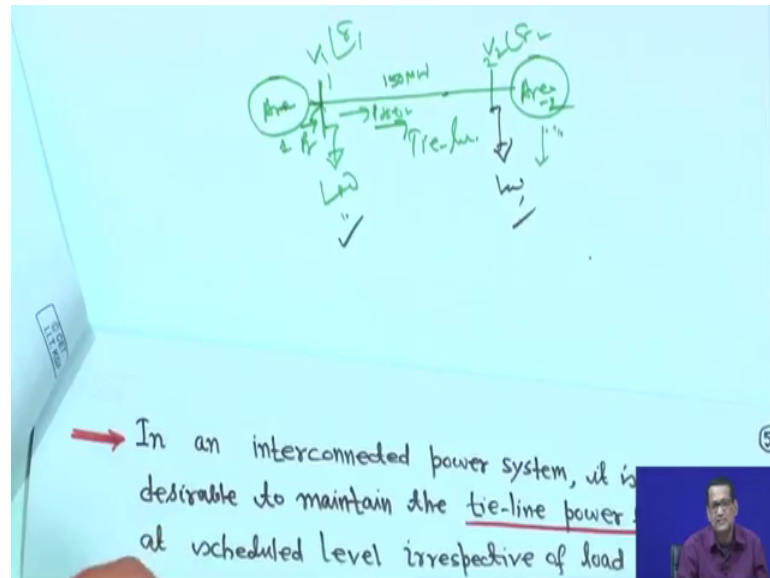 V₁ ∠δ₁ V₂ ∠δ₂
1 150 MW 2
Area Area
1 -2
Tie-line
Load
© CET
I.I.T. KGP
5
In an interconneded power system, it is
desirable to maintain the tie-line power
at scheduled level irrespective of load